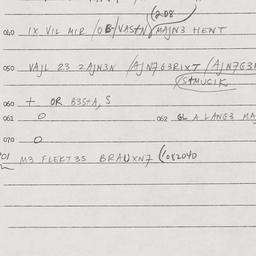 (208
040 IX VIL MIR /OB/VASTN/MAJN3 HENT
050 VAJL 23 2AJN3N /AJN7G3RIXT /AJN7G3
(STMUCIK
060 + OR B3STA, S
061 O 062 GL A LANG3 MA
070 O
01 M3 FLEKT3S BRAUXN7 (082040